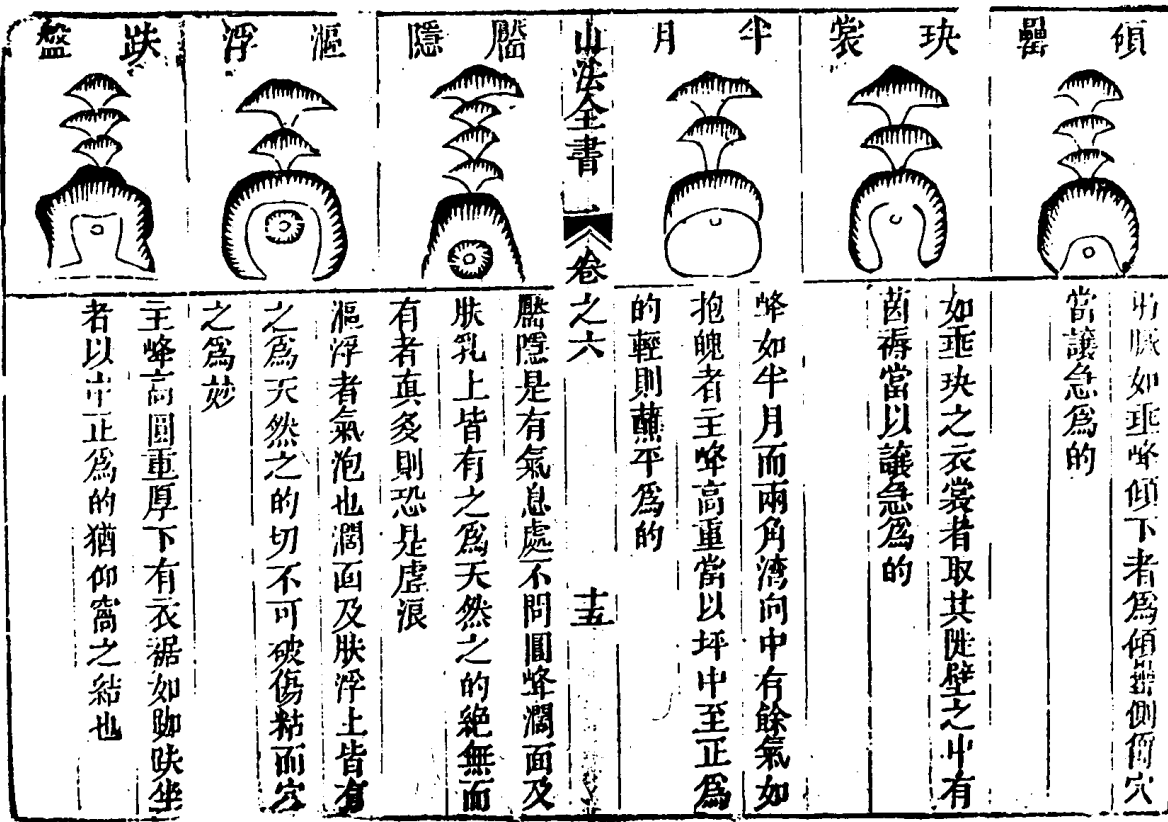 傾罍
出脉如垂峰傾下者爲傾罍側傾穴
當讓急爲的
玦裳
如垂玦之衣裳者取其陡壁之中有
茵褥當以讓急爲的
半月
峰如半月而兩角灣向中有餘氣如
抱魄者主峰高重當以坪中至正爲
的輕則蘸平爲的
山法全書
卷之六
十五
靨隱
靨隱是有氣息處不問圓峰濶面及
肤乳上皆有之爲天然之的絶無而
有者真多則恐是虛浪
漚浮
漚浮者氣泡也濶面及肤浮上皆有
之爲天然之的切不可破傷粘而穴
之爲妙
趺盤
主峰高圓重厚下有衣裾如跏趺坐
者以中正爲的猶仰窩之結也